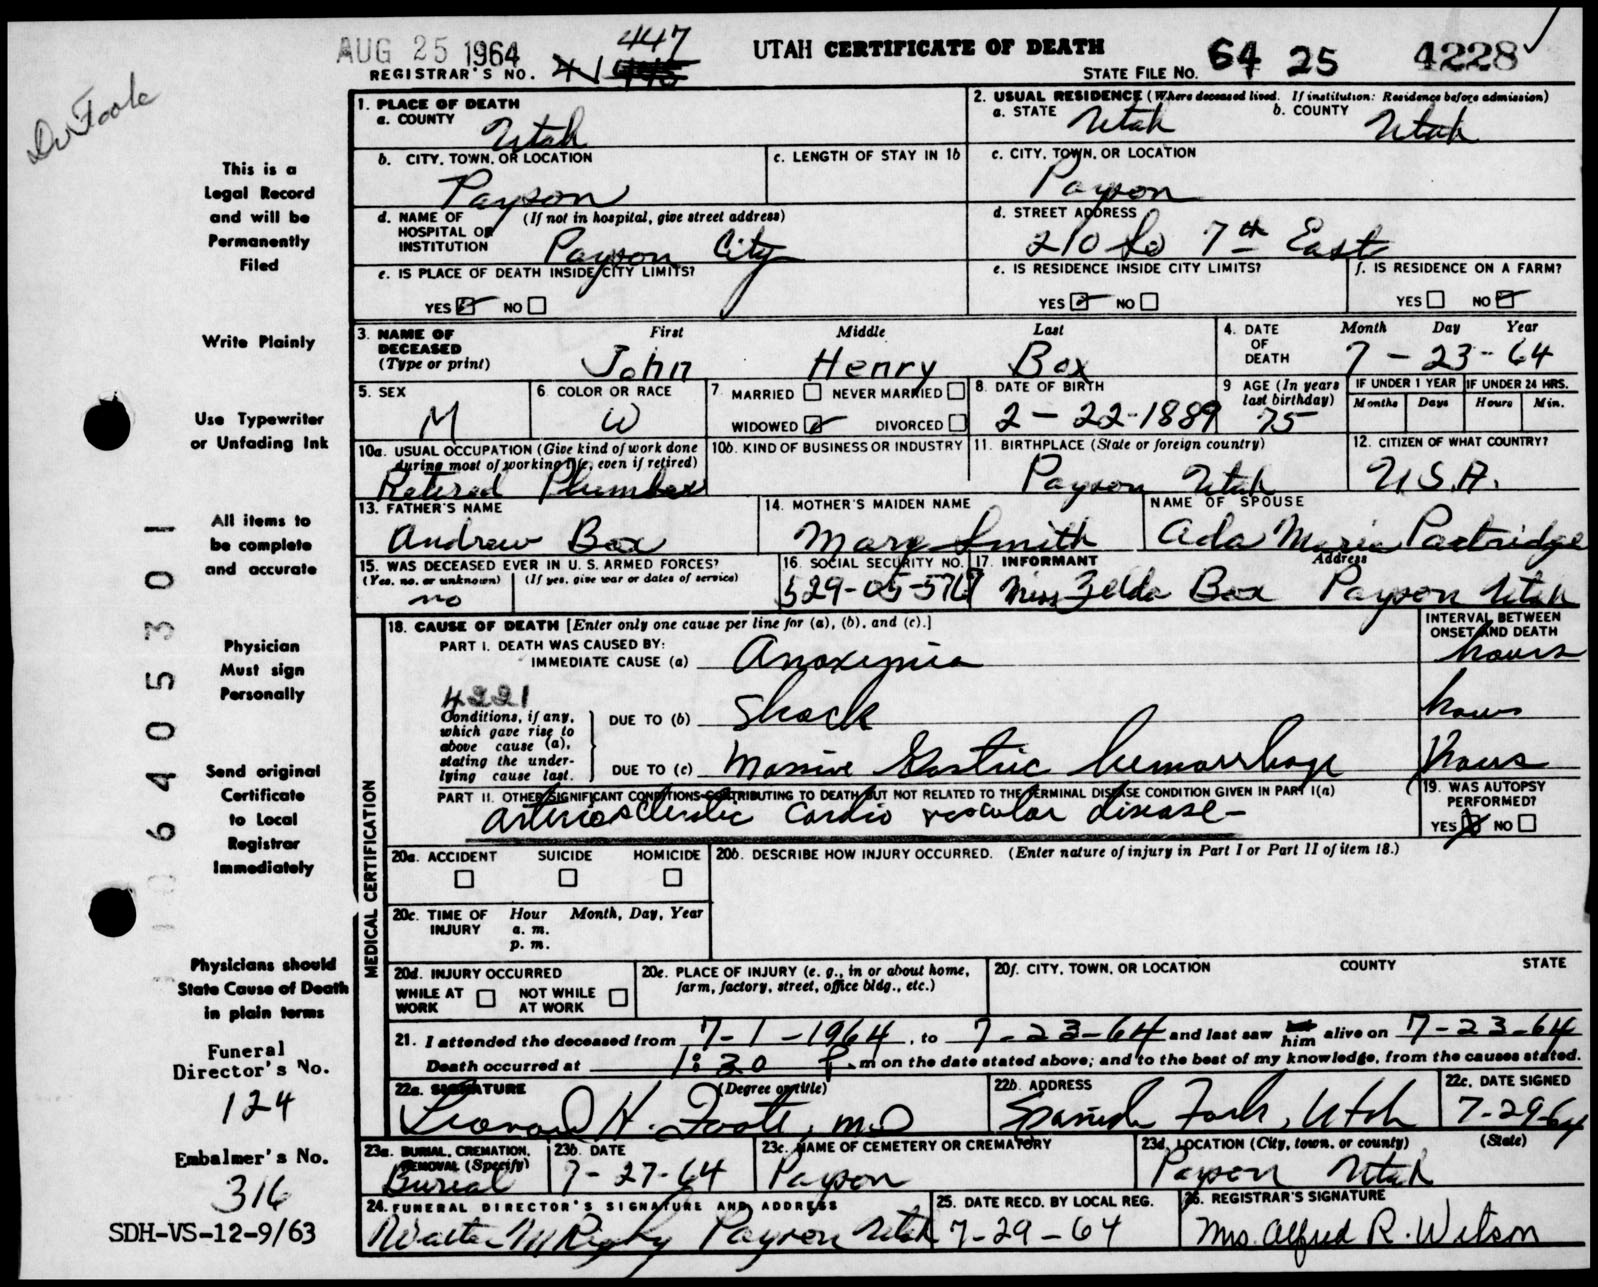 AUG 25 1964
447
REGISTRAR'S NO.
UTAH CERTIFICATE OF DEATH
STATE FILE NO. 64 25 4228
Dr Foote
This is a
Legal Record
and will be
Permanently
Filed
Write Plainly
Use Typewriter
or Unfading Ink
All items to
be complete
and accurate
Physician
Must sign
Personally
Send original
Certificate
to Local
Registrar
Immediately
Physicians should
State Cause of Death
in plain terms
Funeral
Director's No.
124
Embalmer's No.
316
SDH-VS-12-9/63
106405301
1. PLACE OF DEATH
a. COUNTY Utah
2. USUAL RESIDENCE (Where deceased lived. If institution: Residence before admission)
a. STATE Utah b. COUNTY Utah
b. CITY, TOWN, OR LOCATION Payson
c. LENGTH OF STAY IN 1b
c. CITY, TOWN, OR LOCATION Payson
d. NAME OF HOSPITAL OR INSTITUTION (If not in hospital, give street address) Payson City
d. STREET ADDRESS 210 So 7th East
e. IS PLACE OF DEATH INSIDE CITY LIMITS?
YES NO
e. IS RESIDENCE INSIDE CITY LIMITS?
YES NO
f. IS RESIDENCE ON A FARM?
YES NO
3. NAME OF DECEASED (Type or print)
First Middle Last
John Henry Box
4. DATE OF DEATH
Month Day Year
7-23-64
5. SEX M
6. COLOR OR RACE W
7. MARRIED NEVER MARRIED
WIDOWED DIVORCED
8. DATE OF BIRTH 2-22-1889
9 AGE (In years last birthday) 75
IF UNDER 1 YEAR Months Days
IF UNDER 24 HRS. Hours Min.
10a. USUAL OCCUPATION (Give kind of work done during most of working life, even if retired)
Retired Plumber
10b. KIND OF BUSINESS OR INDUSTRY
11. BIRTHPLACE (State or foreign country)
Payson Utah
12. CITIZEN OF WHAT COUNTRY?
U.S.A.
13. FATHER'S NAME
Andrew Box
14. MOTHER'S MAIDEN NAME
Mary Smith
NAME OF SPOUSE
Ada Maria Partridge
15. WAS DECEASED EVER IN U.S. ARMED FORCES?
(Yes, no, or unknown) (If yes, give war or dates of service)
no
16. SOCIAL SECURITY NO.
529-05-
17. INFORMANT Address
Miss Zelda Box Payson Utah
MEDICAL CERTIFICATION
18. CAUSE OF DEATH [Enter only one cause per line for (a), (b), and (c).]
INTERVAL BETWEEN ONSET AND DEATH
PART I. DEATH WAS CAUSED BY:
IMMEDIATE CAUSE (a) Anoxemia hours
4221
Conditions, if any, which gave rise to above cause (a), stating the underlying cause last.
DUE TO (b) Shock hours
DUE TO (c) Massive Gastric hemorrhage hours
PART II. OTHER SIGNIFICANT CONDITIONS CONTRIBUTING TO DEATH BUT NOT RELATED TO THE TERMINAL DISEASE CONDITION GIVEN IN PART I(a)
arteriosclerotic cardio vascular disease-
19. WAS AUTOPSY PERFORMED?
YES NO
20a. ACCIDENT SUICIDE HOMICIDE
20b. DESCRIBE HOW INJURY OCCURRED. (Enter nature of injury in Part I or Part II of item 18.)
20c. TIME OF INJURY Hour Month, Day, Year
a. m.
p. m.
20d. INJURY OCCURRED
WHILE AT WORK NOT WHILE AT WORK
20e. PLACE OF INJURY (e. g., in or about home, farm, factory, street, office bldg., etc.)
20f. CITY, TOWN, OR LOCATION COUNTY STATE
21. I attended the deceased from 7-1-1964, to 7-23-64 and last saw him alive on 7-23-64
Death occurred at 1:30 P.m on the date stated above; and to the best of my knowledge, from the causes stated.
22a. SIGNATURE (Degree or title)
Leonard H. Foote, M.D
22b. ADDRESS
Spanish Fork, Utah
22c. DATE SIGNED
7-29-64
23a. BURIAL, CREMATION, REMOVAL (Specify)
Burial
23b. DATE
7-27-64
23c. NAME OF CEMETERY OR CREMATORY
Payson
23d. LOCATION (City, town, or county) (State)
Payson Utah
24. FUNERAL DIRECTOR'S SIGNATURE AND ADDRESS
Walter M Rigby Payson Utah
25. DATE RECD. BY LOCAL REG.
7-29-64
26. REGISTRAR'S SIGNATURE
Mrs. Alfred R. Wilson